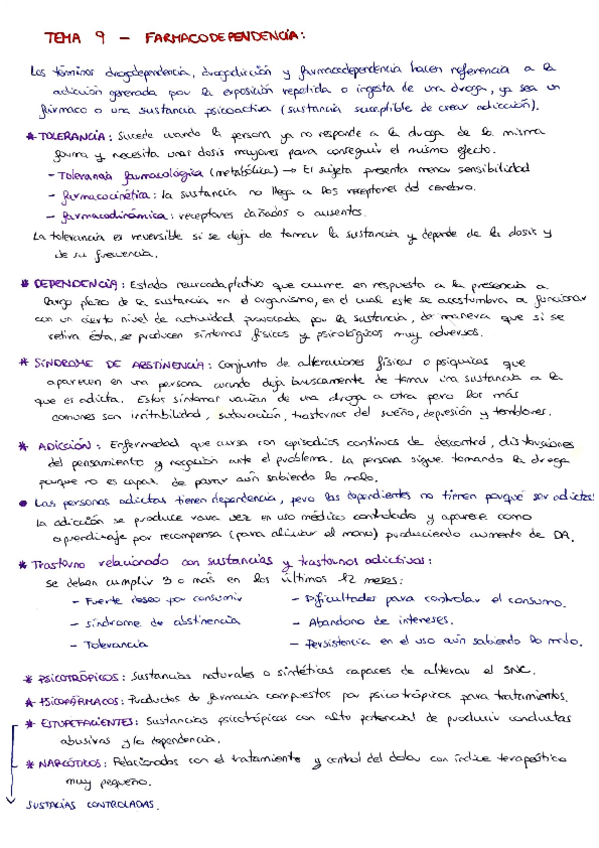 TEMA 9 - FARMACODEPENDENCIA:
Los términos drogodependencia, drogadicción y farmacodependencia hacen referencia a la
adicción generada por la exposición repetida o ingesta de una droga, ya sea un
fármaco o una sustancia psicoactiva (sustancia susceptible de crear adicción).
* TOLERANCIA: Sucede cuando la persona ya no responde a la droga de la misma
forma y necesita unas dosis mayores para conseguir el mismo efecto.
- Tolerancia farmacológica (metabólica) → El sujeto presenta menor sensibilidad
- farmacocinética: la sustancia no llega a los receptores del cerebro.
- farmacodinámica: receptores dañados o ausentes.
La tolerancia es reversible si se deja de tomar la sustancia y depende de la dosis y
de su frecuencia.
* DEPENDENCIA: Estado neuroadaptativo que ocurre en respuesta a la presencia a
largo plazo de la sustancia en el organismo, en el cual este se acostumbra a funcionar
con un cierto nivel de actividad provocada por la sustancia, de manera que si se
retira ésta, se producen síntomas físicos y psicológicos muy adversos.
* SÍNDROME DE ABSTINENCIA: Conjunto de alteraciones físicas o psíquicas que
aparecen en una persona cuando deja bruscamente de tomar una sustancia a la
que es adicta. Estos síntomas varían de una droga a otra pero los más
comunes son irritabilidad, sudoración, trastornos del sueño, depresión y temblores.
* ADICCIÓN: Enfermedad que cursa con episodios continuos de descontrol, distorsiones
del pensamiento y negación ante el problema. La persona sigue tomando la droga
porque no es capaz de parar aún sabiendo lo malo.
• Las personas adictas tienen dependencia, pero los dependientes no tienen porqué ser adictos
La adicción se produce rara vez en uso médico controlado y aparece como
aprendizaje por recompensa (para aliviar el mono) produciendo aumento de DA.
* Trastorno relacionado con sustancias y trastornos adictivos:
Se deben cumplir 3 o más en los últimos 12 meses:
- Fuerte deseo por consumir - Dificultades para controlar el consumo.
- síndrome de abstinencia - Abandono de intereses.
- Tolerancia - Persistencia en el uso aún sabiendo lo malo.
* PSICOTRÓPICOS: Sustancias naturales o sintéticas capaces de alterar el SNC.
* PSICOFÁRMACOS: Productos de farmacia compuestos por psicotrópicos para tratamientos.
* ESTUPEFACIENTES: Sustancias psicotrópicas con alto potencial de producir conductas
abusivas y/o dependencia.
* NARCÓTICOS: Relacionados con el tratamiento y control del dolor con índice terapeútico
muy pequeño.
SUSTACIAS CONTROLADAS.